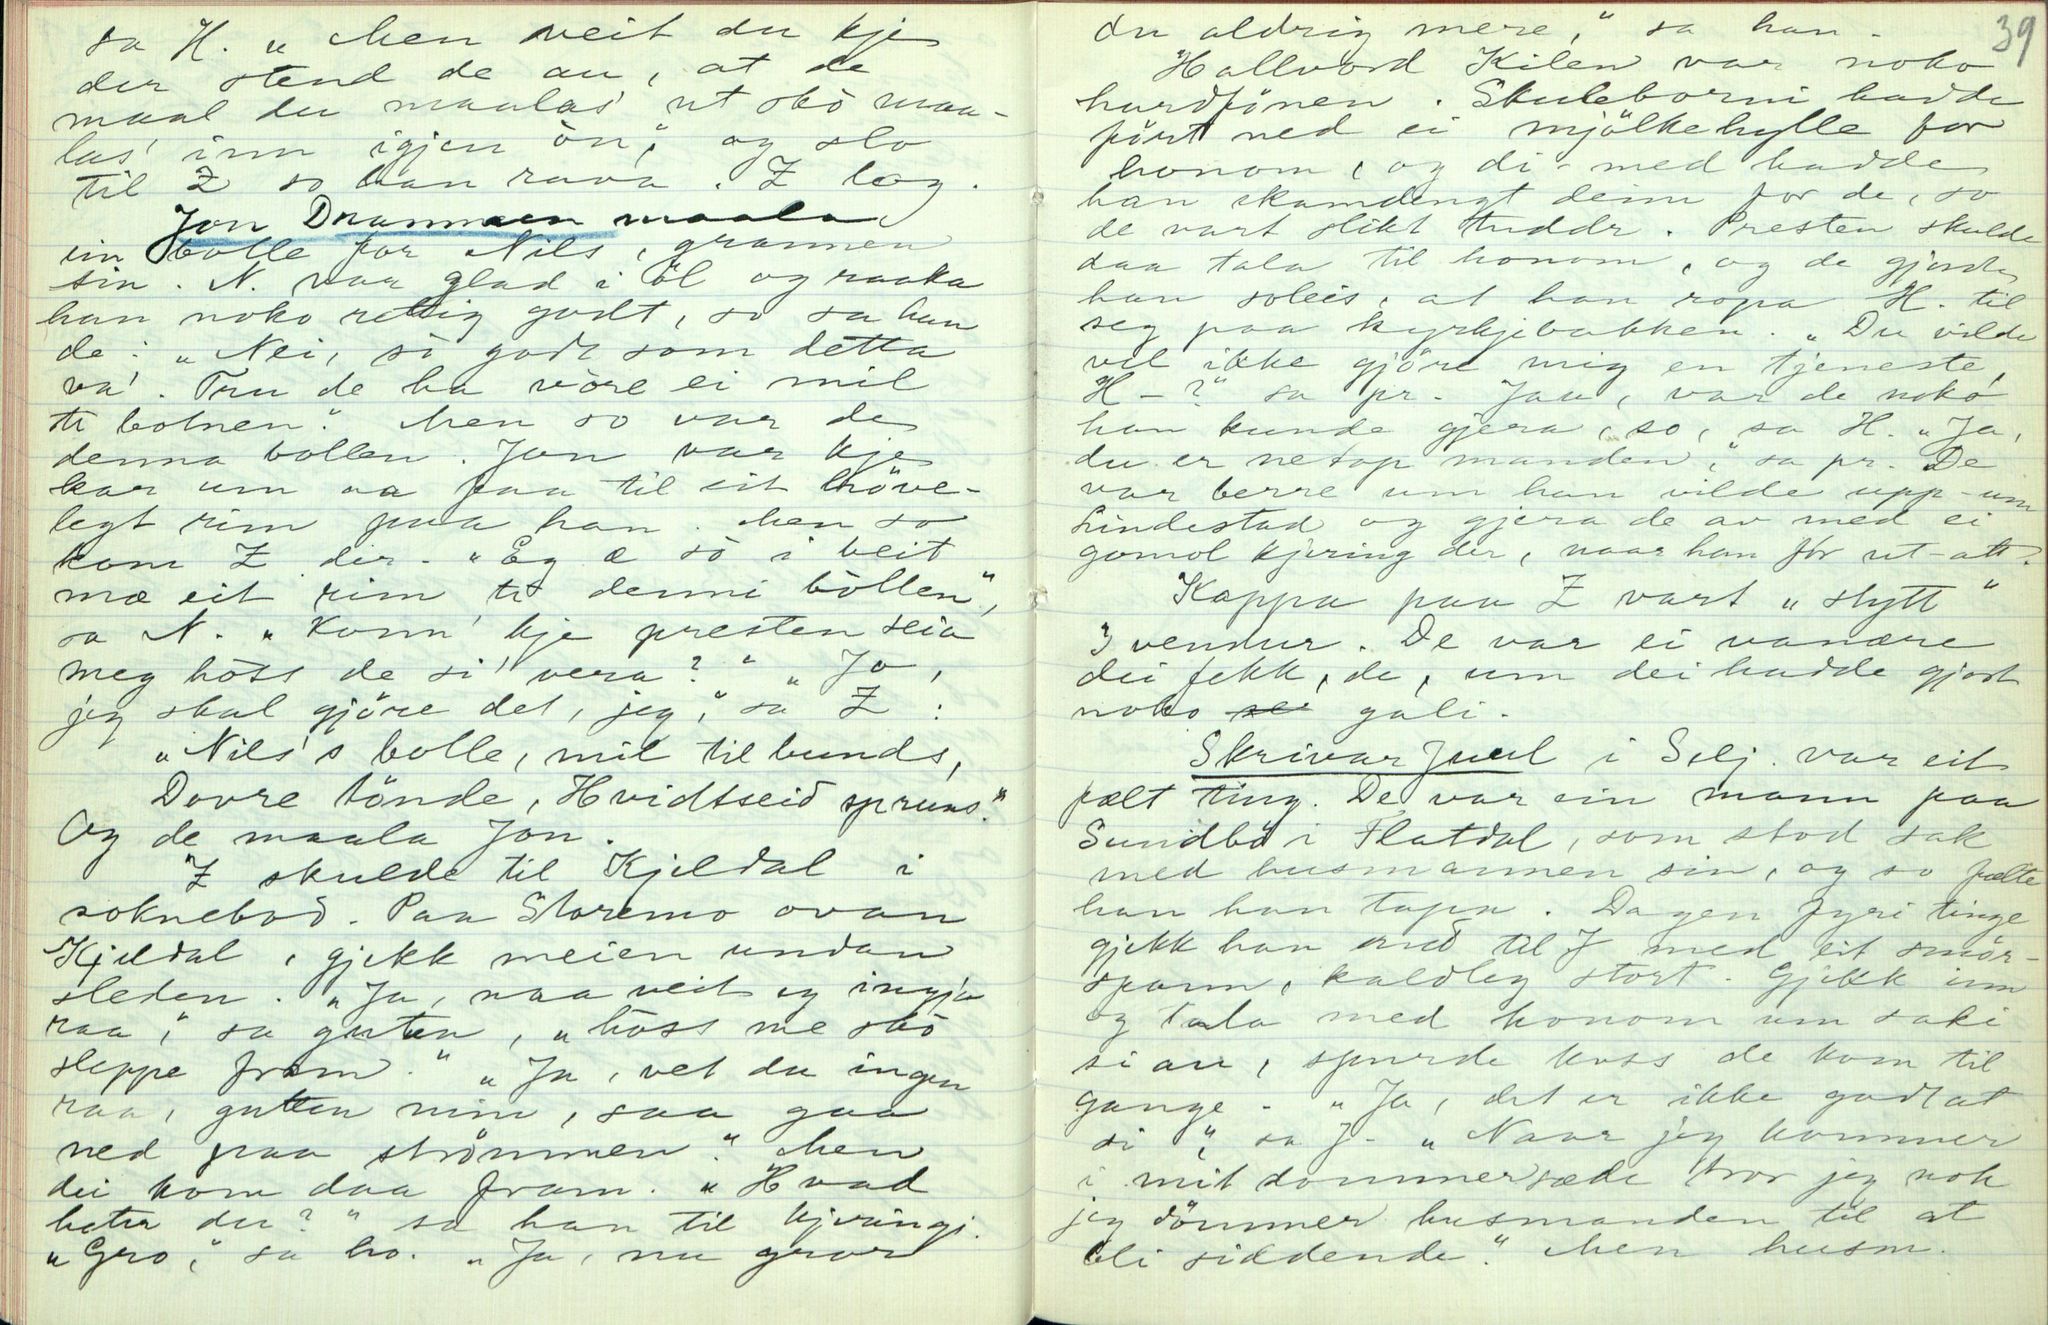 sa H. „Men veit du kje
der stend de au, at de
maal du maalas' ut skò maa-
las' inn igjen òn," og slo
til Z so han rava. Z log.
Jon Drammen maala
ein bolle for Nils, grannen
sin. N. var glad i öl og raaka
han noko rettig godt, so sa han
de: „Nei, sò godt som detta
va'. Tru de ha vöre ei mil
te botnen". Men so var de
denna bollen. Jon var kje
kar um aa faa til eit höve-
legt rim paa han. Men so
kom Z der. „Eg æ sò i beit
mæ eit rim te denni bòllen",
sa N. „Konn' kje presten seia
meg hòss de si' vera?" „Jo,
jeg skal gjöre det, jeg," sa Z:
„Nils's bolle, mil til bunds,
Dovre tönde, Hvidtseid spruns."
Og de maala Jon.
Z skulde til Kjeldal i
soknebod. Paa Storemo ovan
Kjeldal, gjekk meien undan
sleden. „Ja, naa veit eg ingja
raa," sa guten, „hòss me skò
sleppe fram." „Ja, vet du ingen
raa, gutten min, saa gaa
ned paa strömmen." Men
dei kom daa fram. „Hvad
heter du?" sa han til kjeringi.
„Gro," sa ho. „Ja, nu gror
du aldrig mere," sa han.
39
Hallvord Kilen var noko
hardfönen. Skuleborni hadde
fört ned ei mjölkehylle for
honom, og di-med hadde
han skamdengt deim for de, so
de vart slikt tuddr. Presten skulde
daa tala til honom, og de gjorde
han soleis, at han ropa H. til
seg paa kyrkjebakken. „Du vilde
vel ikke gjöre mig en tjeneste,
H-?" sa pr. Jau, var de noko
han kunde gjera, so, sa H. „Ja,
du er netop manden," sa pr. De
var berre um han vilde upp-um
Lindestad og gjera de av med ei
gomol kjering der, naar han for ut-att.
Kappa paa Z vart „stytt"
3 vendur. De var ei vanære
dei fekk, de, um dei hadde gjort
noko gali.
Skrivar Juul i Selj. var eit
fælt ting. De var ein mann paa
Sundbö i Flatdal, som stod sak
med husmannen sin, og so fælte
han han tapa. Dagen fyri tinge
gjekk han ned til J med eit smör-
spann, kaldleg stort. Gjekk inn
og tala med honom um saki
si au, spurde koss de kom til
gange. „Ja, det er ikke godt at
si," sa J- „Naar jeg kommer
i mit dommersæde tror jeg nok
jeg dömmer husmanden til at
bli siddende". Men husm.